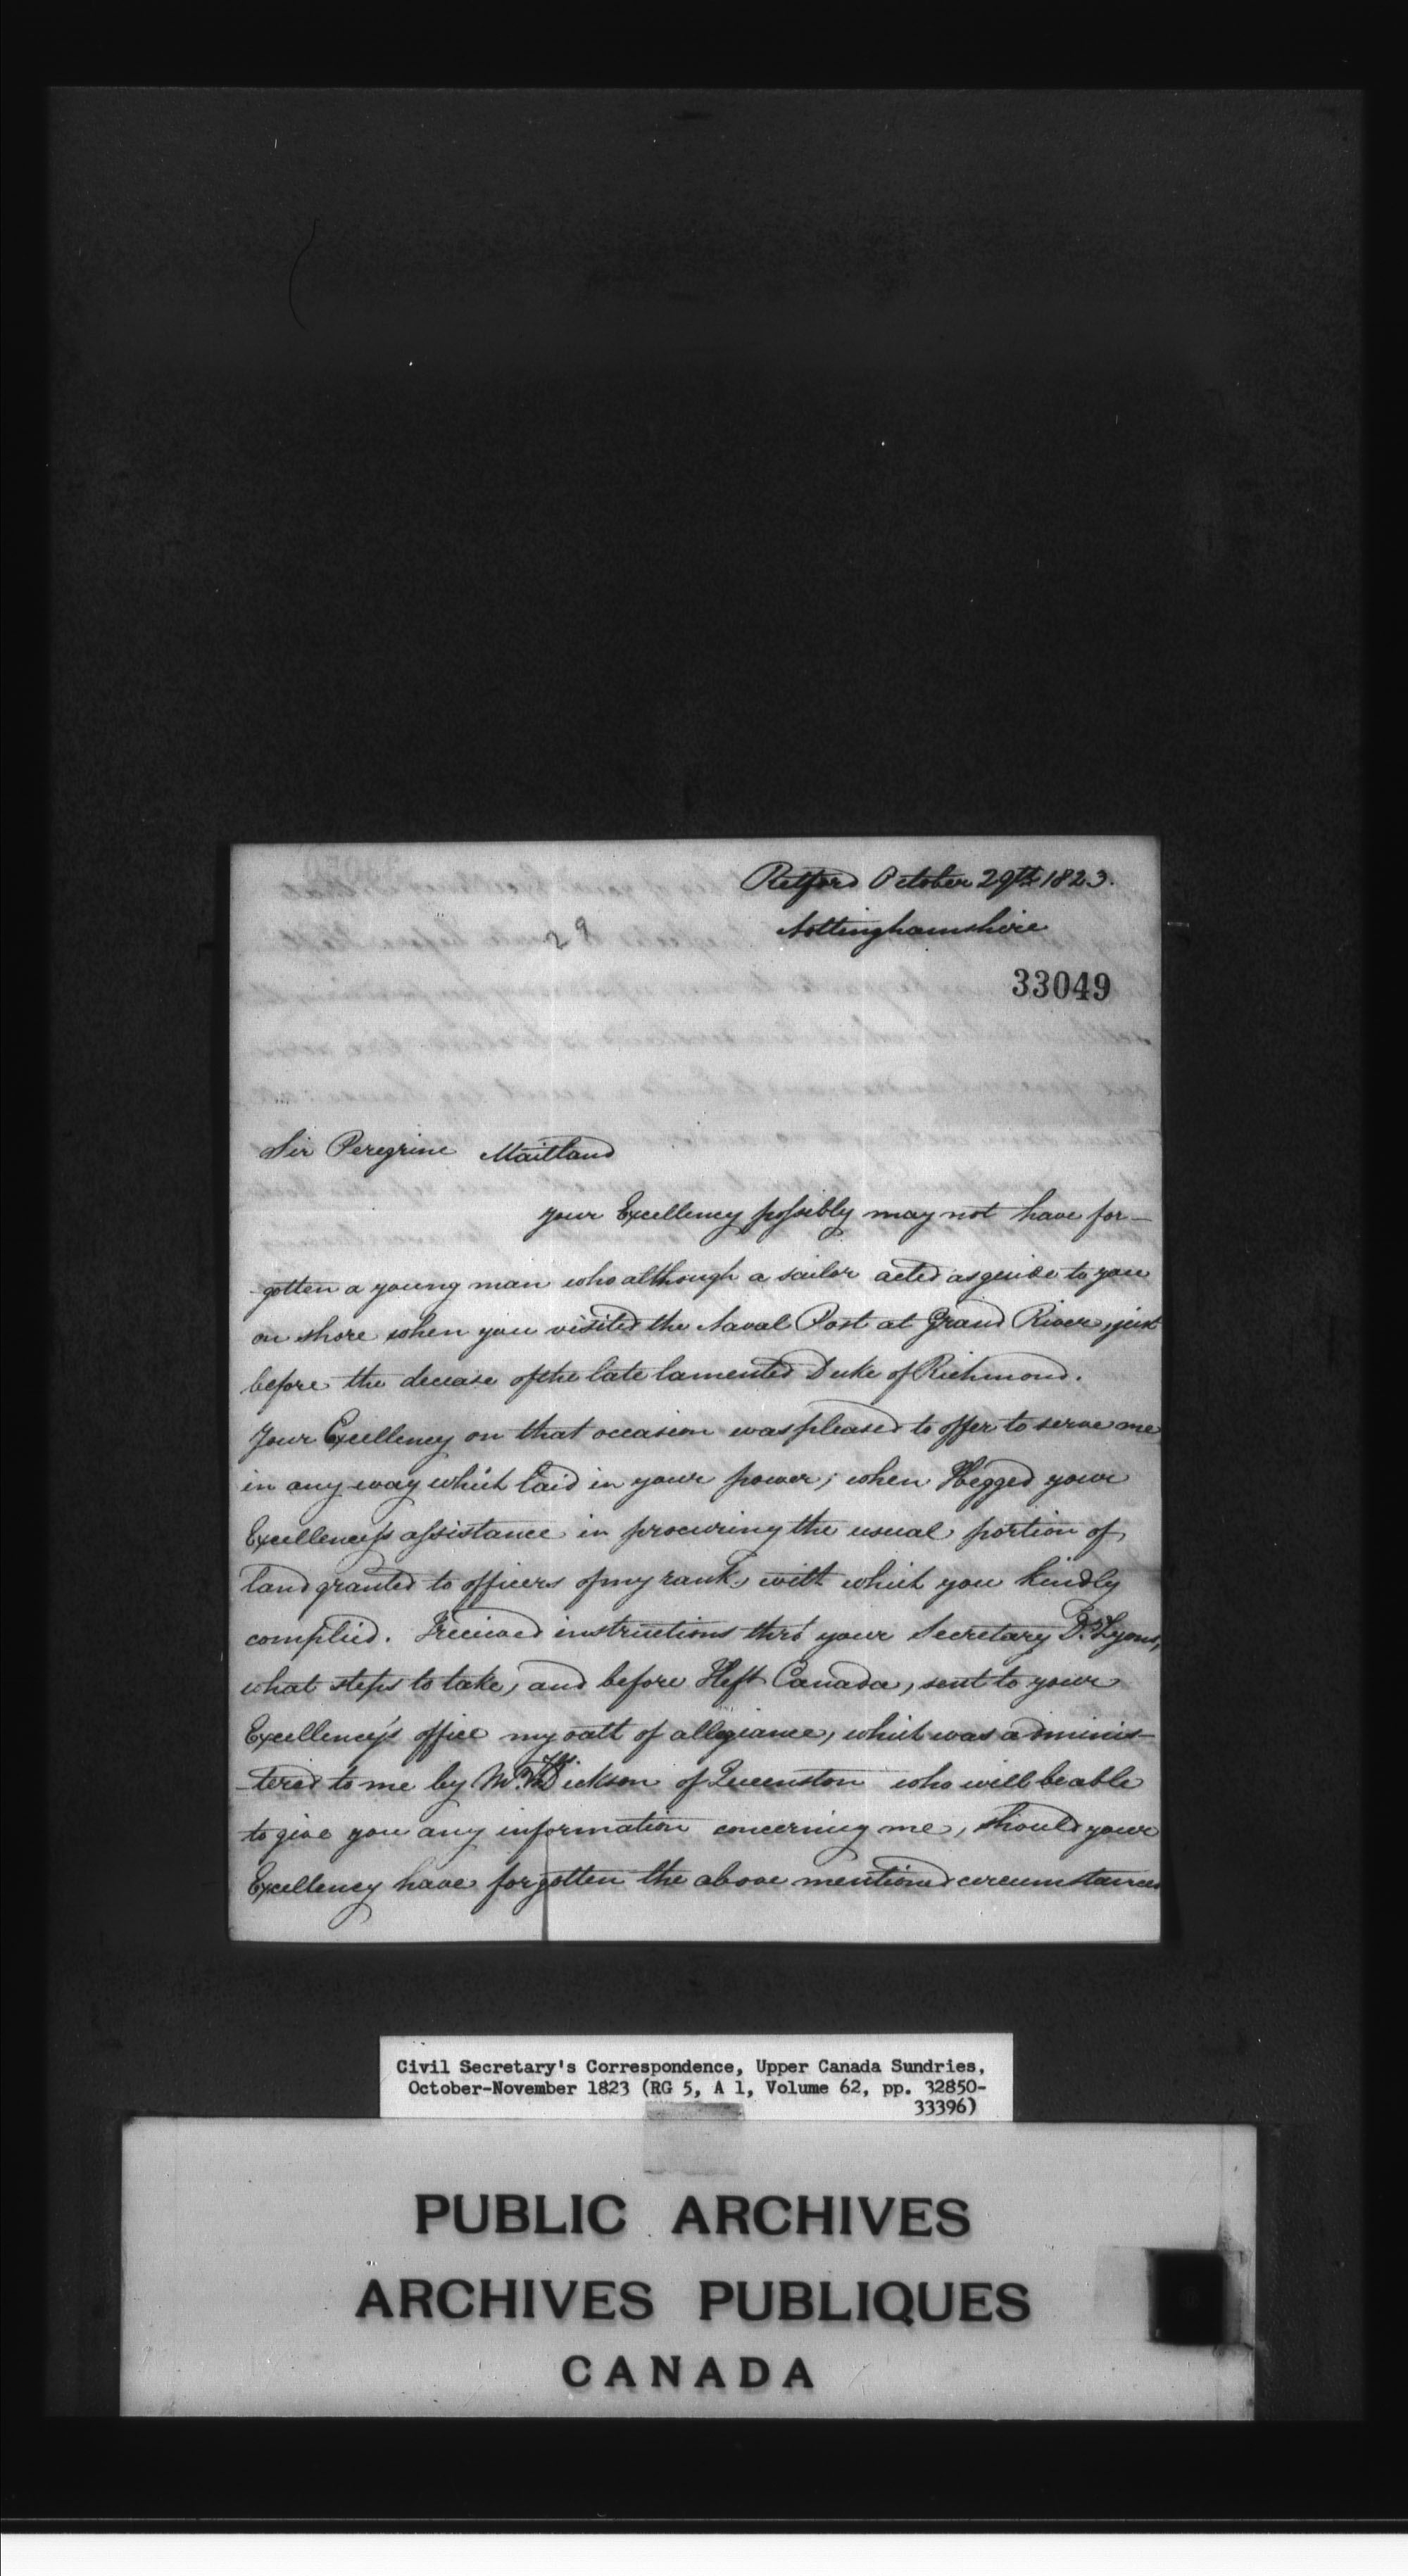 Retford October 29th 1823.
Nottinghamshire
29
33049
Sir Peregrine Maitland
your Excellency possibly may not have for-
gotten a young man who although a sailor acted as guide to you
on shore when you visited the Naval Post at Grand River, just
before the decease of the late lamented Duke of Richmond.
Your Excellency on that occasion was pleased to offer to serve me
in any way which laid in your power; when I begged your
Excellency's assistance in procuring the usual portion of
land granted to officers of my rank, with which you kindly
complied. I received instructions thro' your Secretary Lyons,
what steps to take, and before I left Canada, sent to your
Excellency's office my oath of allegiance, which was adminis-
-tered to me by Mr. Dickson of Queenston who will be able
to give you any information concerning me, should your
Excellency have forgotten the above mentioned circumstances
Civil Secretary's Correspondence, Upper Canada Sundries,
October-November 1823 (RG 5, A 1, Volume 62, pp. 32850-
33396)
PUBLIC ARCHIVES
ARCHIVES PUBLIQUES
CANADA